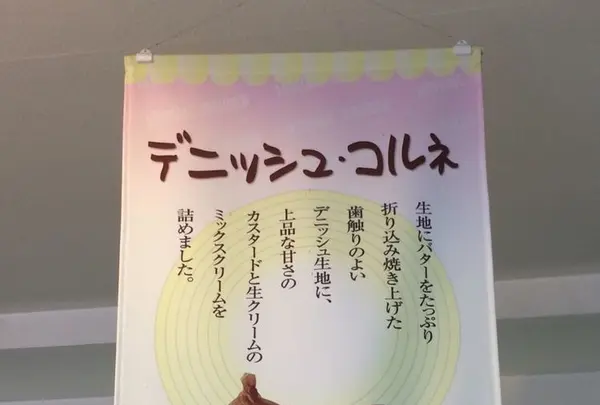 デニッシュ・コルネ
生地にバターをたっぷり
折り込み焼き上げた
歯触りのよい
デニッシュ生地に、
上品な甘さの
カスタードと生クリームの
ミックスクリームを
詰めました。